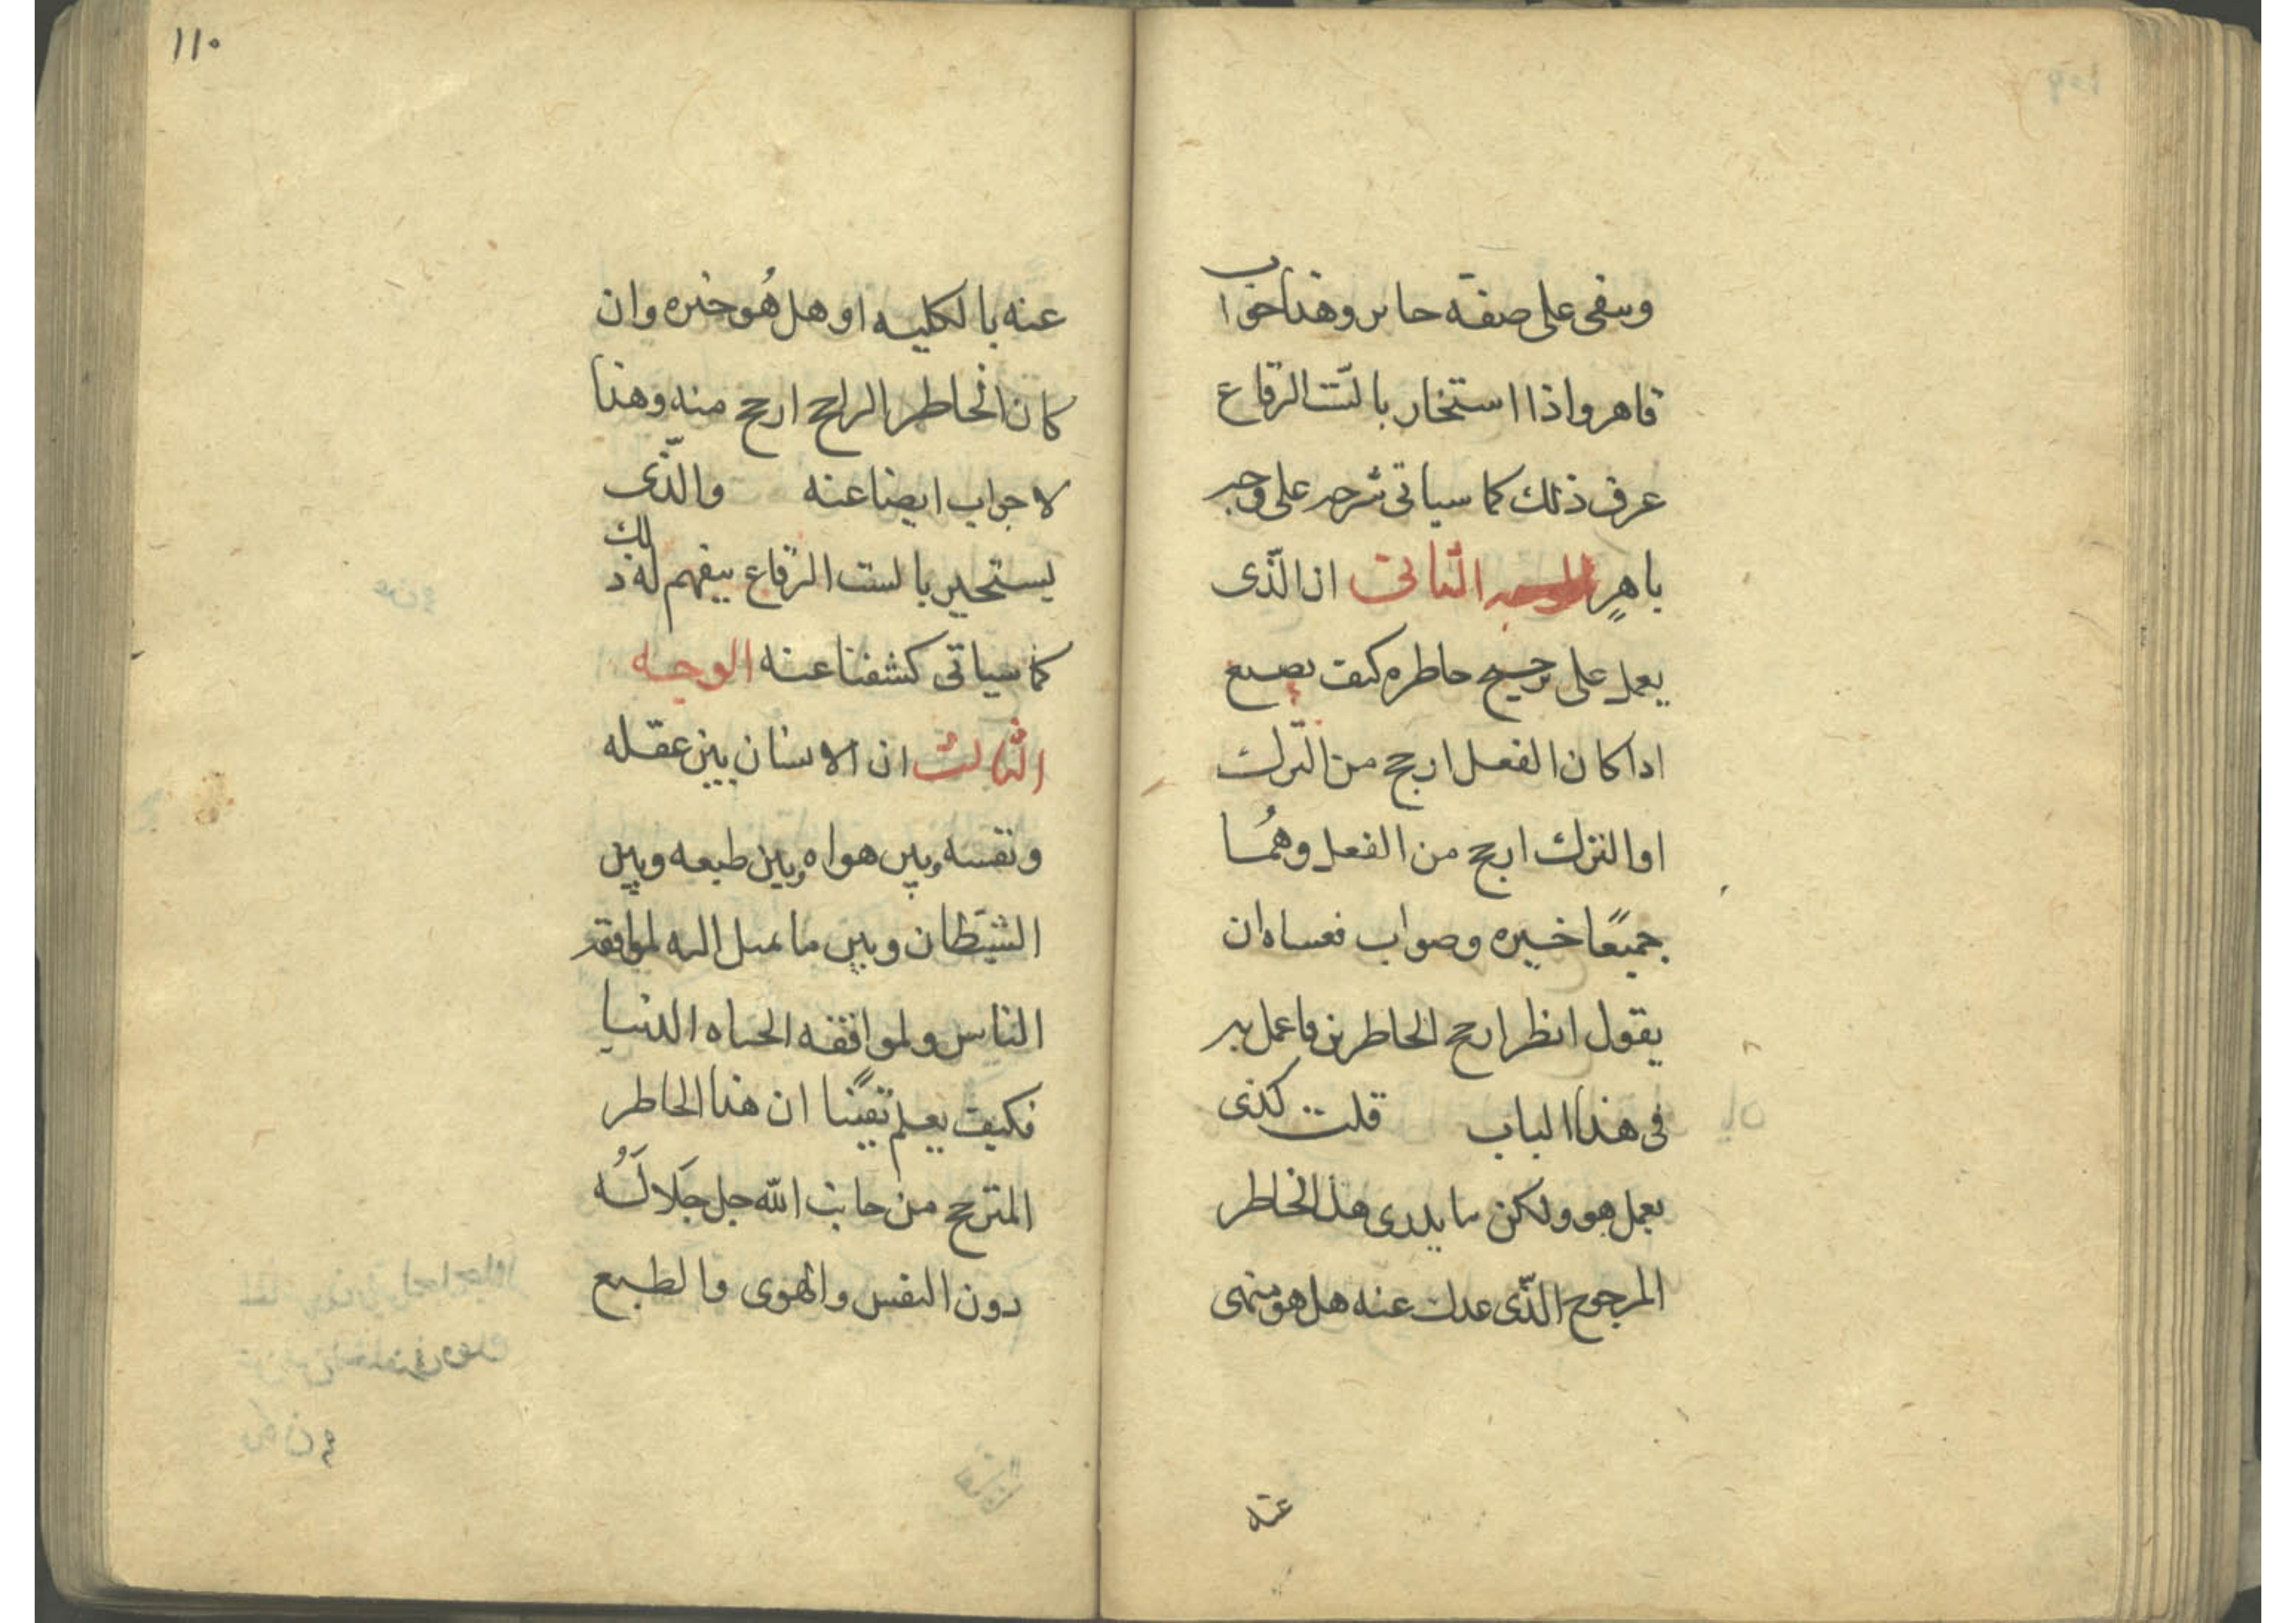 وسقى على صفة حاىر وهذا جواب
قاهر واذا استخار بالست الرقاع
عرف ذلك كما سياتى شرحه على وجه
باهرٍ الوجه الثانى ان الذّى
يعمل على ترجيح خاطره كيف يصنع
اذا كان الفعل ارجح من الترك
او الترك ارجح من الفعل وهُما
جميعًا خيره وصواب فعساه ان
يقول انظر ارجح الخاطرين فاعمل به
فى هذا الباب قلت كذى
يعمل هو ولكن ما يدرى هذا الخاطر
المرجوح الذّى عدل عنه هل هو منهى
عنه
١١٠
عنه بالكليه او هل هُو خيره وان
كان الخاطر الراجح ارجح منه وهذا
لا جواب ايضا عنه والذّى
يستخير بالست الرقاع يفهم له ذلك
كما سياتى كشفنا عنه الوجه
الثالث ان الانسان بين عقله
ونفسه وبين هواه وبين طبعه وبين
الشيَطان وبين ما يميل اليه لموافقه
الناس ولموافقه الحياه الدنيا
فكيف يعلم يقينًا ان هذا الخاطر
المترجح من جانب الله جل جَلالَهُ
دون النفس والهوى والطبع